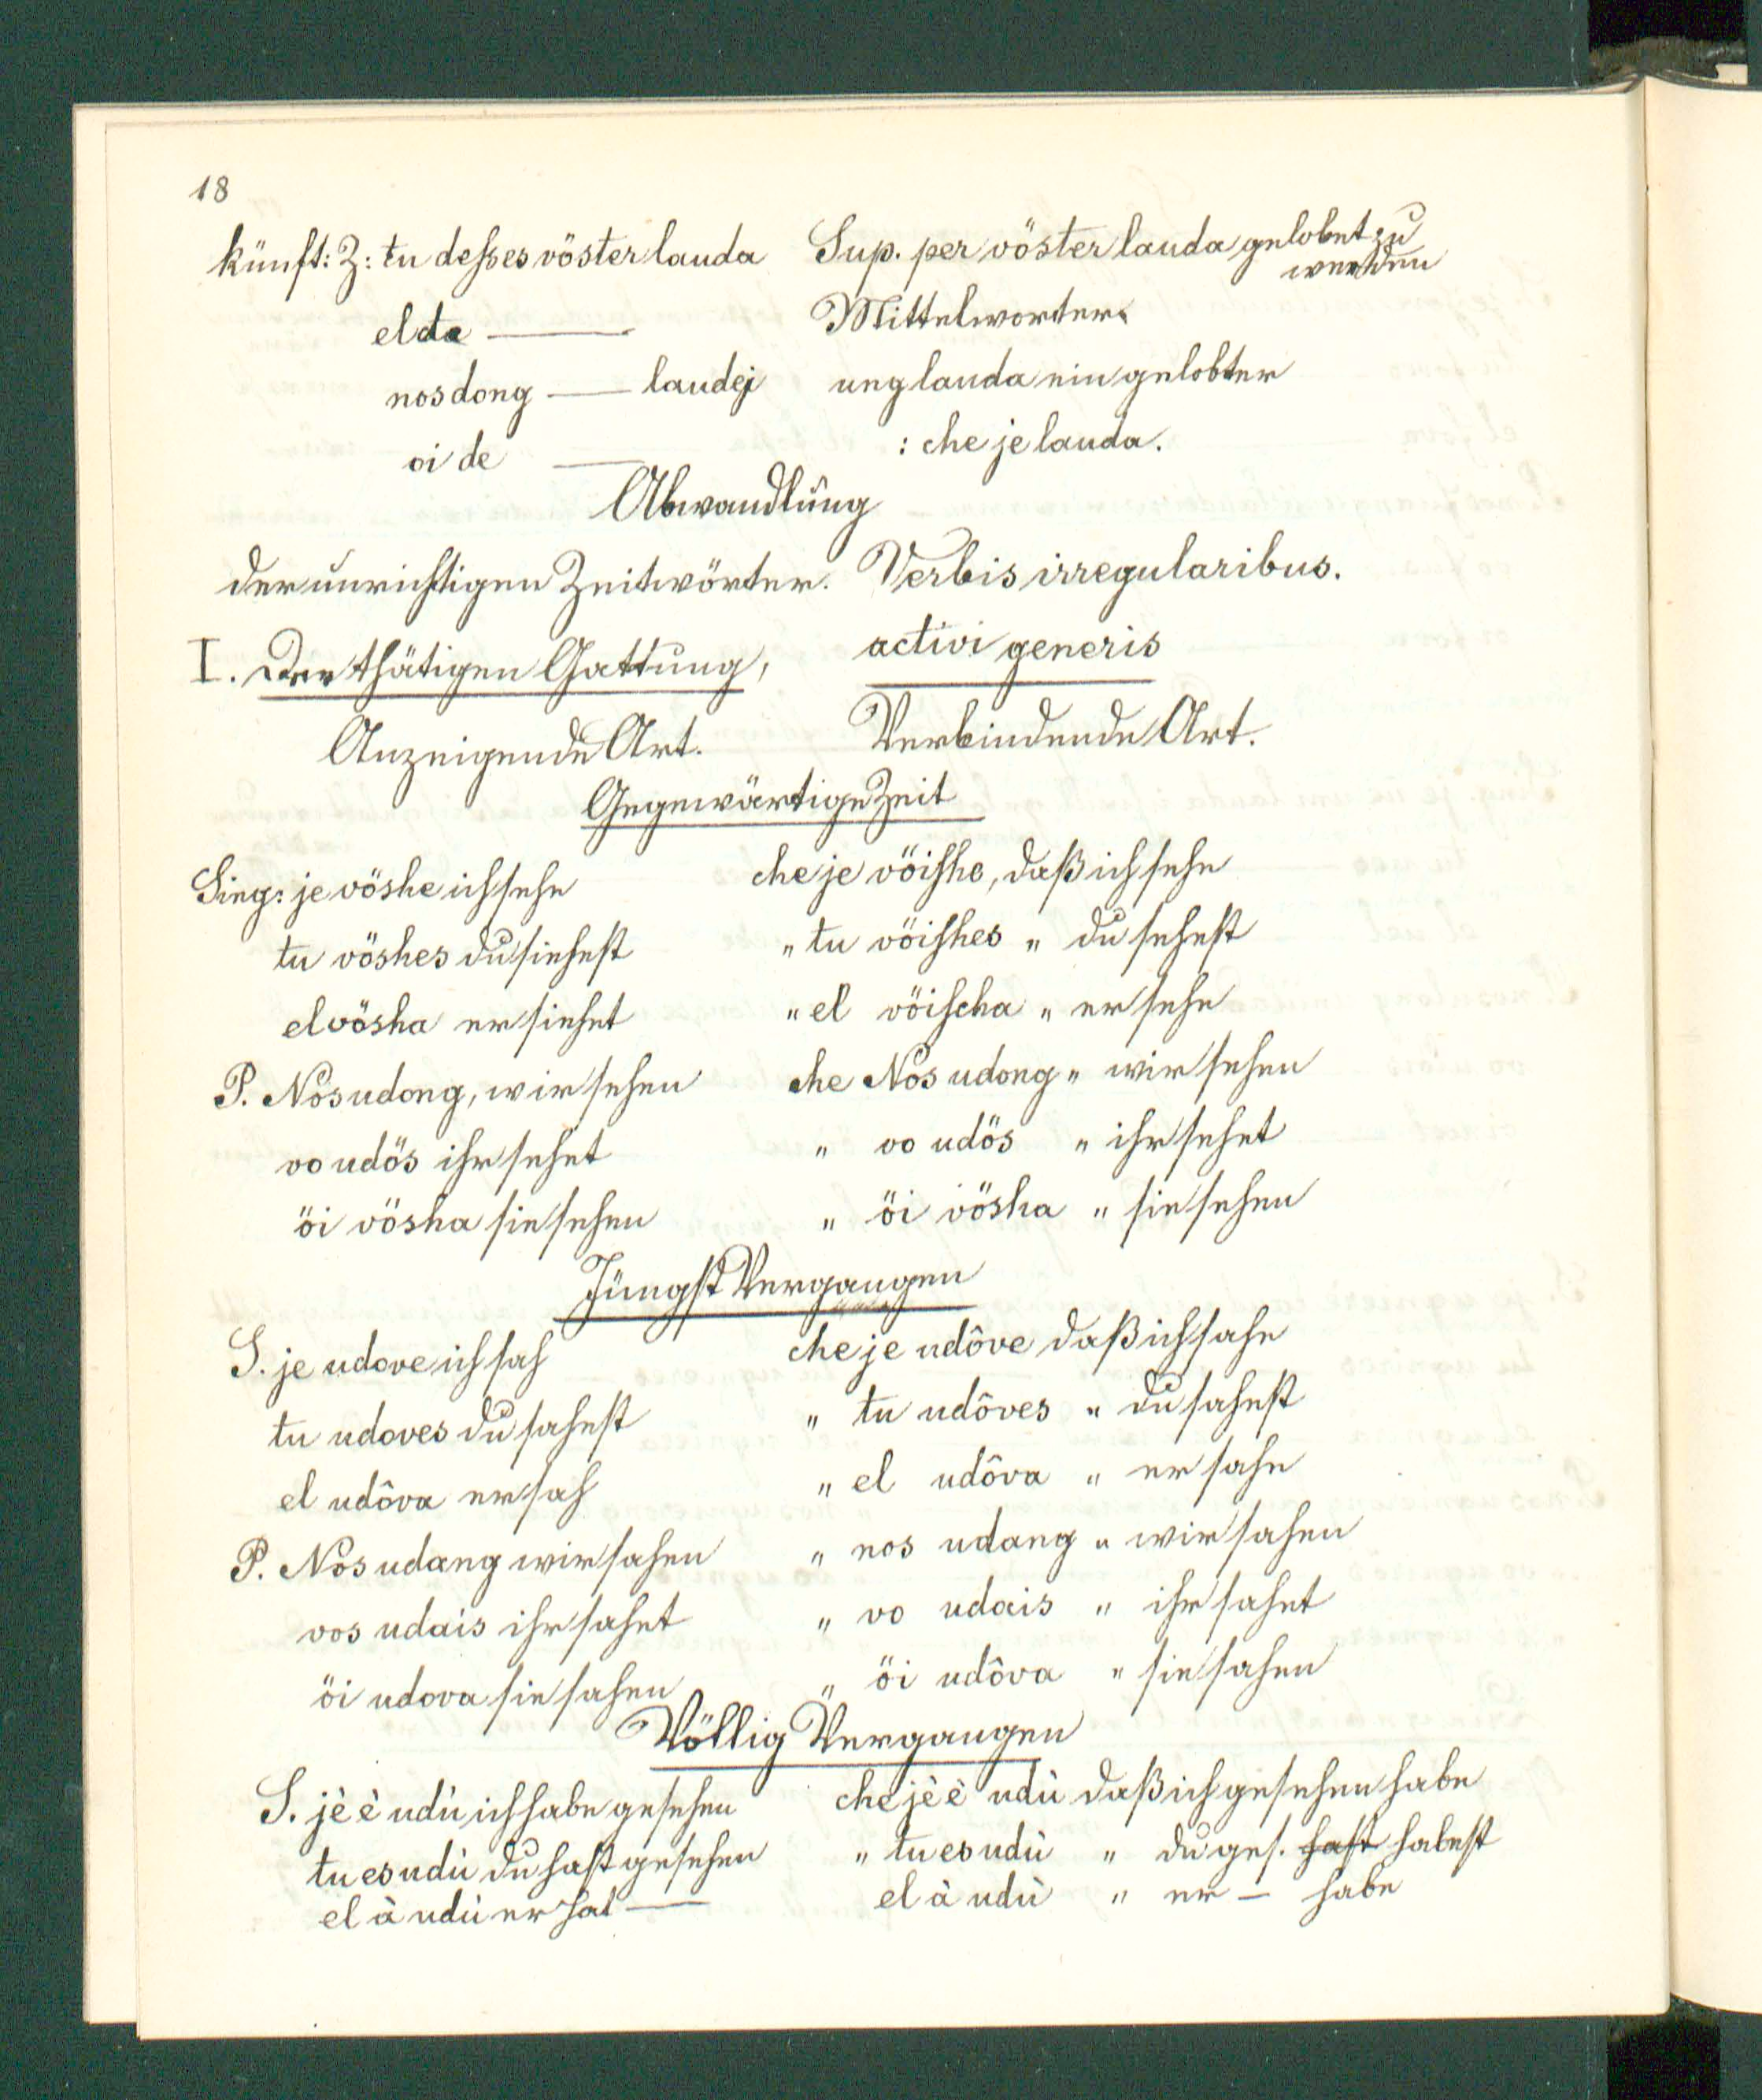 18
künft: Z: tu deßes vöster lauda Sup. per vöster lauda gelobet zu
werden
el da — Mittelworter
nos dong — laudej ung lauda ein gelobter
oi de — : che je lauda.
Abwandlung
der unrichtigen Zeitwörter. Verbis irregularibus.
I. Der thätigen Gattung, activi generis
Anzeigende Art. Verbindende Art.
Gegenwärtige Zeit
Sing: je vöshe ich sehe che je vöishe, daß ich sehe
tu vöshes du siehest " tu vöishes " du sehest
el vösha er siehet " el vöischa " er sehe
P. Nos udong, wir sehen che Nos udong " wir sehen
vo udös ihr sehet " vo udös " ihr sehet
öi vösha sie sehen " öi vösha " sie sehen
Jüngst Vergangen
S. je udove ich sah che je udôve daß ich sahe
tu udoves du sahest " tu udôves " du sahest
el udôva er sah " el udôva " er sahe
P. Nos udang wir sahen " nos udang " wir sahen
vos udais ihr sahet " vo udais " ihr sahet
öi udova sie sahen " öi udôva " sie sahen
Völlig Vergangen
S. jè è udù ich habe gesehen che jè è udù daß ich gesehen habe
tu es udù du hast gesehen " tu es udù " du ges. hast habest
el à udù er hat — el à udù " er — habe